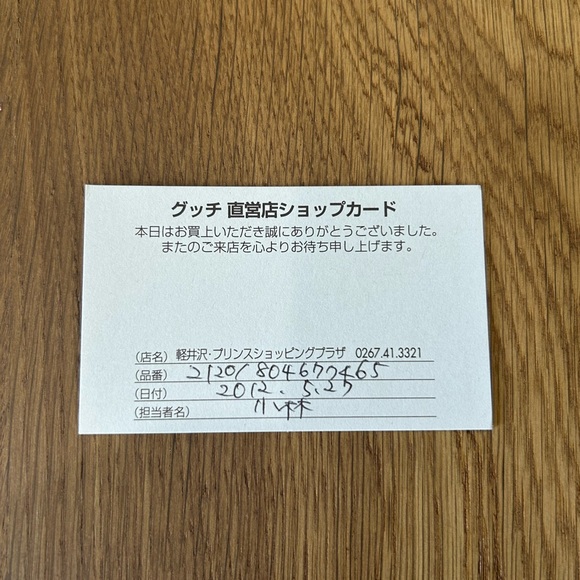 グッチ 直営店ショップカード
本日はお買上いただき誠にありがとうございました。
またのご来店を心よりお待ち申し上げます。
(店名) 軽井沢・プリンスショッピングプラザ 0267.41.3321
(品番) 212018046577465
(日付) 2012.5.27
(担当者名) 小林